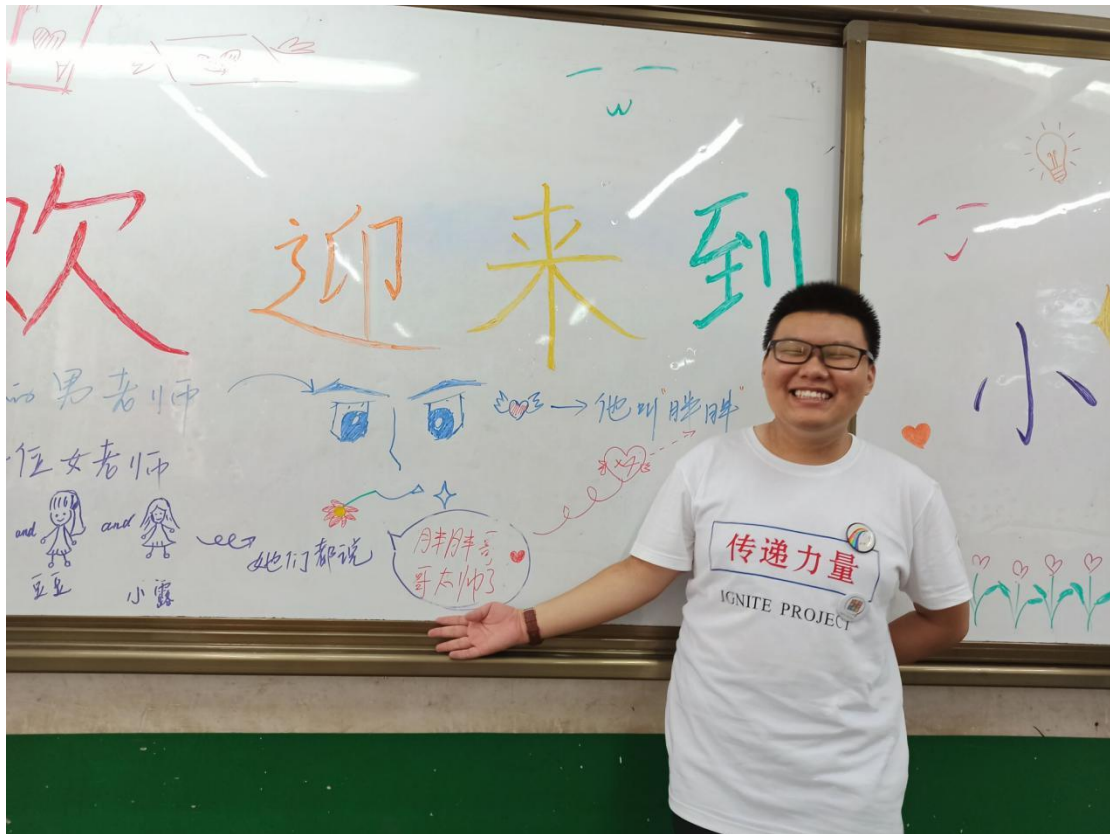 欢迎来到 小
的男老师
→ 他叫"胖胖"
×4
一位女老师
and and
豆豆 小露
她们都说
胖胖哥
哥太帅了
传递力量
IGNITE PROJECT